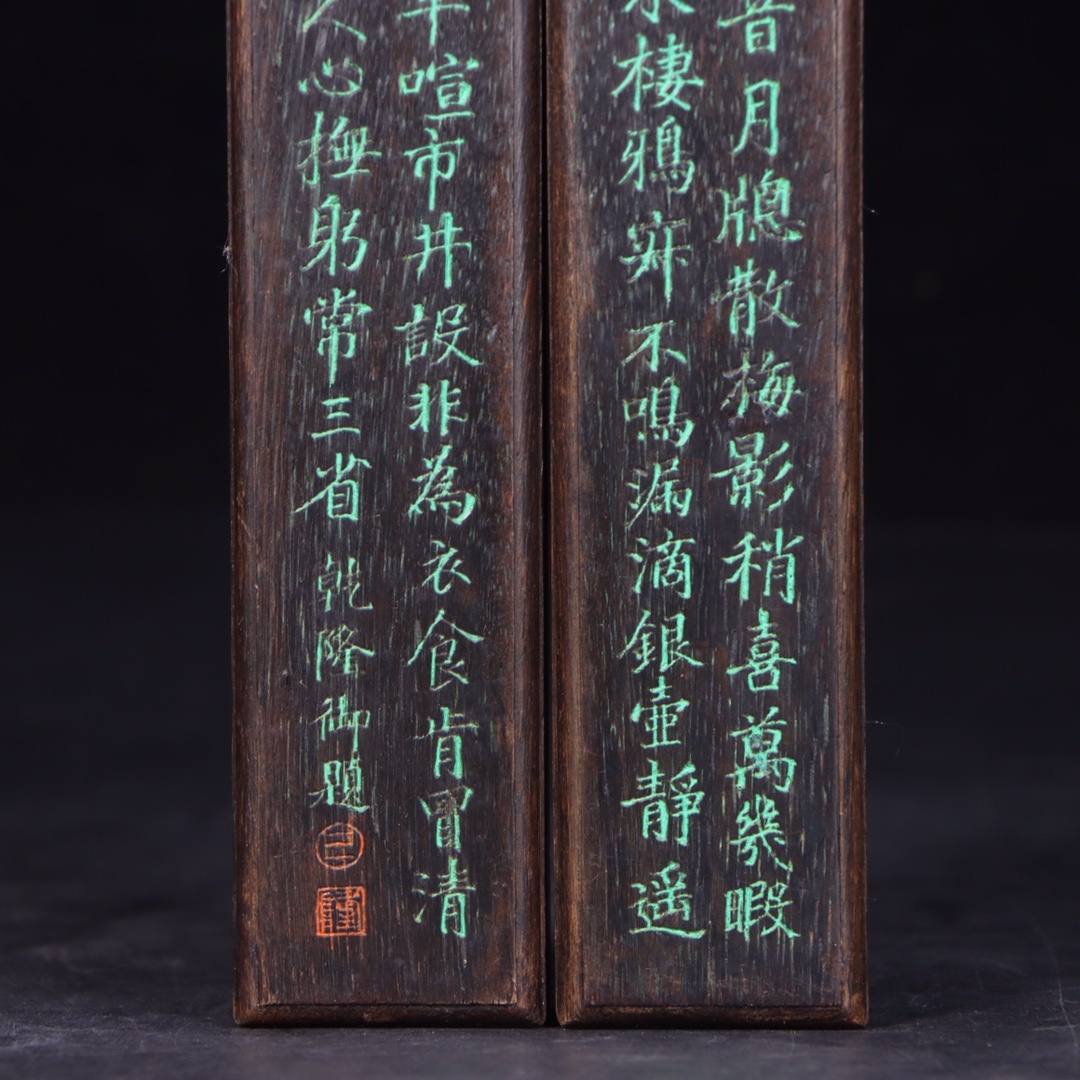 月牕散梅影稍喜萬幾暇
棲鴉不鳴漏滴銀壺靜遥
喧市井設非為衣食肯冒清
心撫躬常三省 乾隆御題